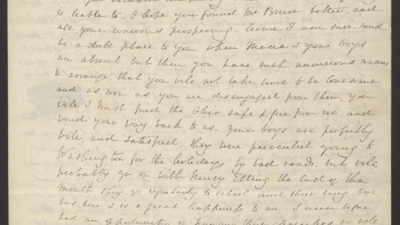 is liable to. I hope you found Bruce better, and
all your concerns prospering. Home I am sure must
be a dull place to you when Maria & your boys
are absent but then you have such numerous
to arrange that you will not take time to be lonesome
and as soon as you are disengaged from them, you
will I trust find the Ohio safe & free from ice, and
wend your way back to us. Your boys are perfectly
well and satisfied, they were prevented going to
Washington for the holidays by bad roads, but will
probably go on with Henry the last of this
month they go regularly to school and their being
has been is a great happiness to me. I never
had an opportunity of knowing their characters so well